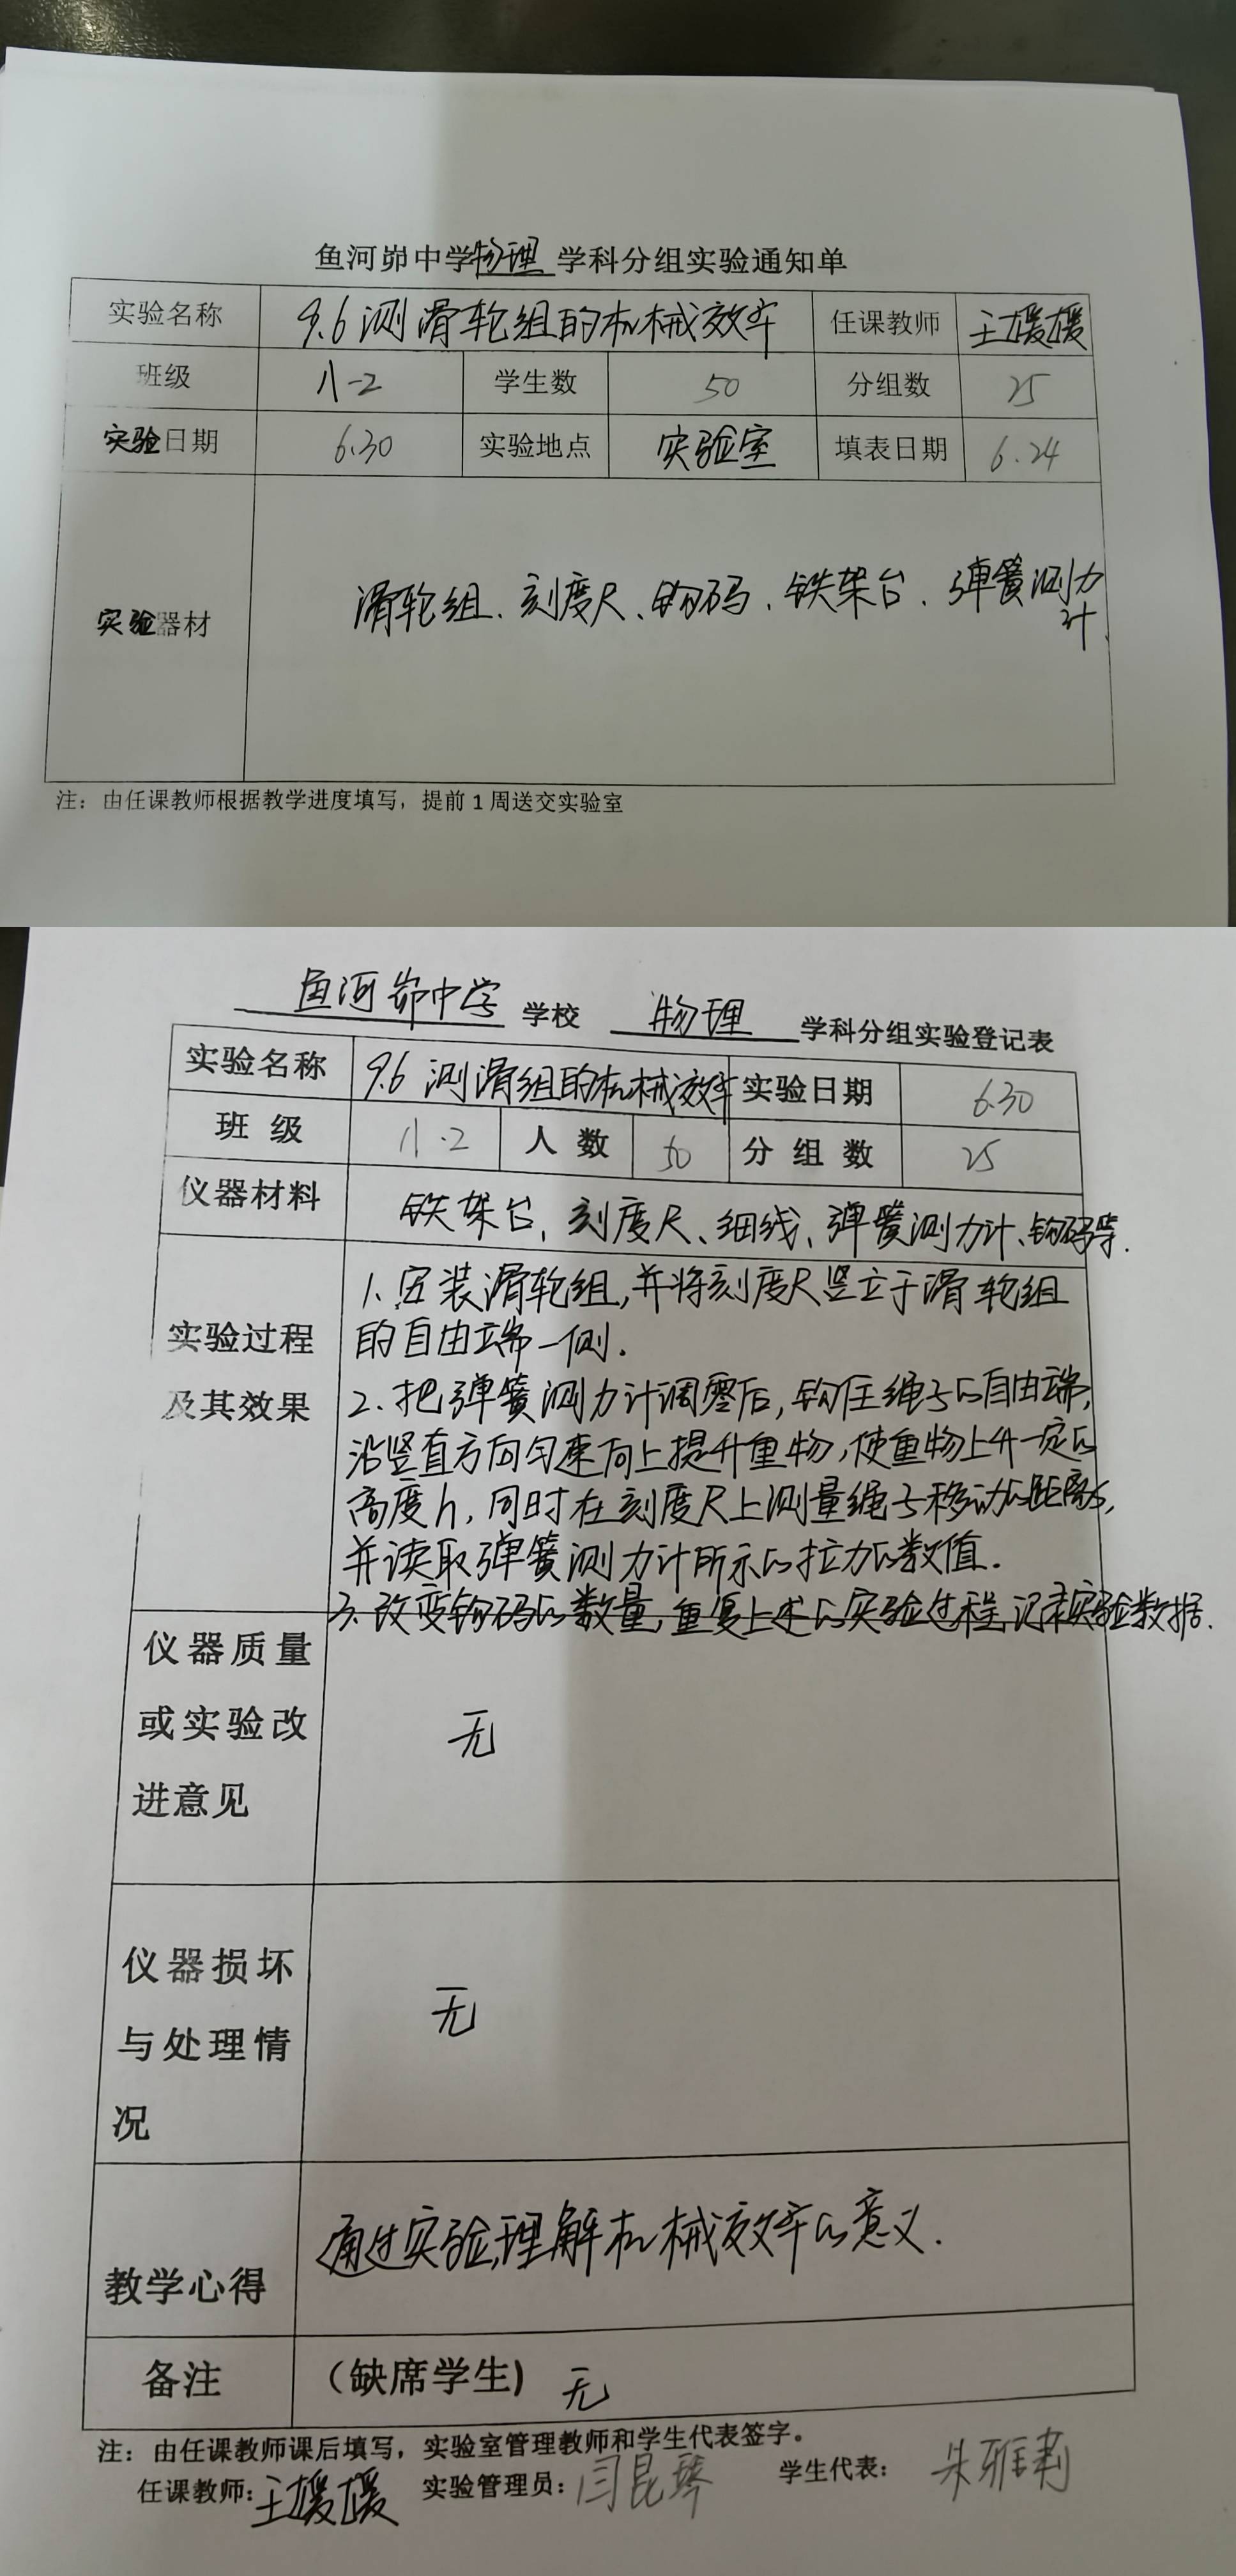 鱼河峁中学物理学科分组实验通知单
实验名称 9.6 测滑轮组的机械效率 任课教师 王媛媛
班级 八-2 学生数 50 分组数 25
实验日期 6.30 实验地点 实验室 填表日期 6.24
实验器材 滑轮组、刻度尺、钩码、铁架台、弹簧测力
计.
注：由任课教师根据教学进度填写，提前1周送交实验室
鱼河峁中学 学校 物理 学科分组实验登记表
实验名称 9.6 测滑组的机械效率 实验日期 6.30
班级 八.2 人数 50 分组数 25
仪器材料 铁架台、刻度尺、细线、弹簧测力计、钩码等.
实验过程
及其效果
1.安装滑轮组,并将刻度尺竖立于滑轮组
的自由端一侧.
2.把弹簧测力计调零后,钩住绳子的自由端,
沿竖直方向匀速向上提升重物,使重物上升一定的
高度h,同时在刻度尺上测量绳子移动的距离s,
并读取弹簧测力计所示的拉力的数值.
3.改变钩码的数量,重复上述的实验过程,记录实验数据.
仪器质量
或实验改
进意见
无
仪器损坏
与处理情
况
无
教学心得 通过实验,理解机械效率的意义.
备注 （缺席学生) 无
注：由任课教师课后填写，实验室管理教师和学生代表签字。
任课教师：王媛媛 实验管理员：闫昆琴 学生代表：朱雅莉